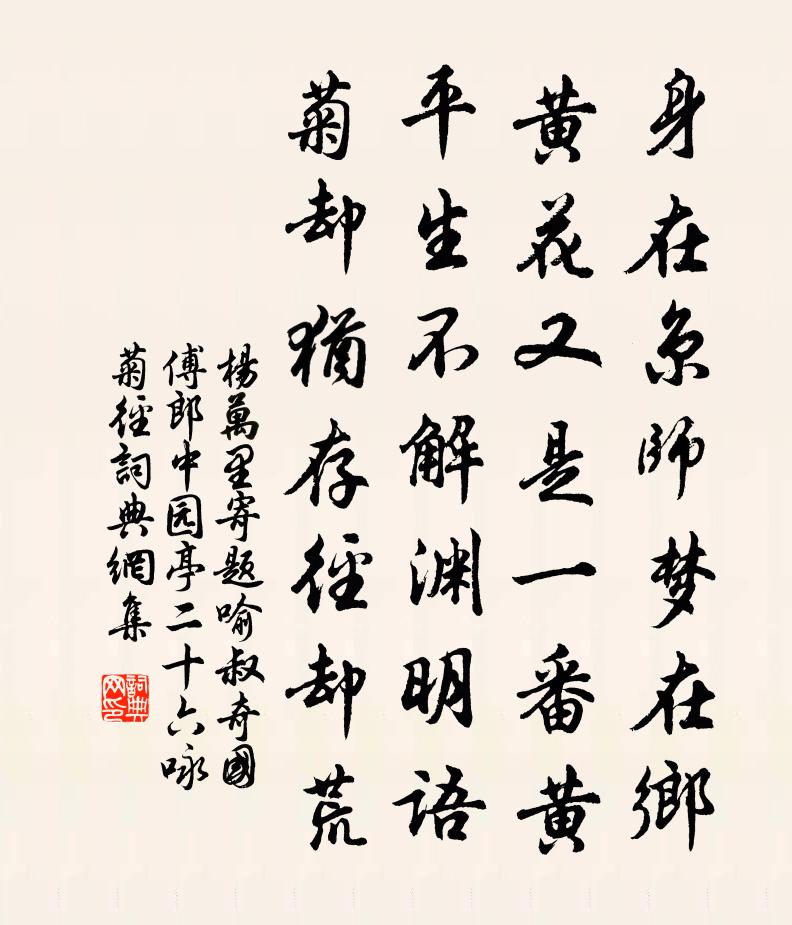 身在京师梦在鄉
黄花又是一番黄
平生不解渊明语
菊却猶存徑却荒
楊萬里寄题喻叔奇國
傅郎中园亭二十六咏
菊徑詞典網集
詞典网印